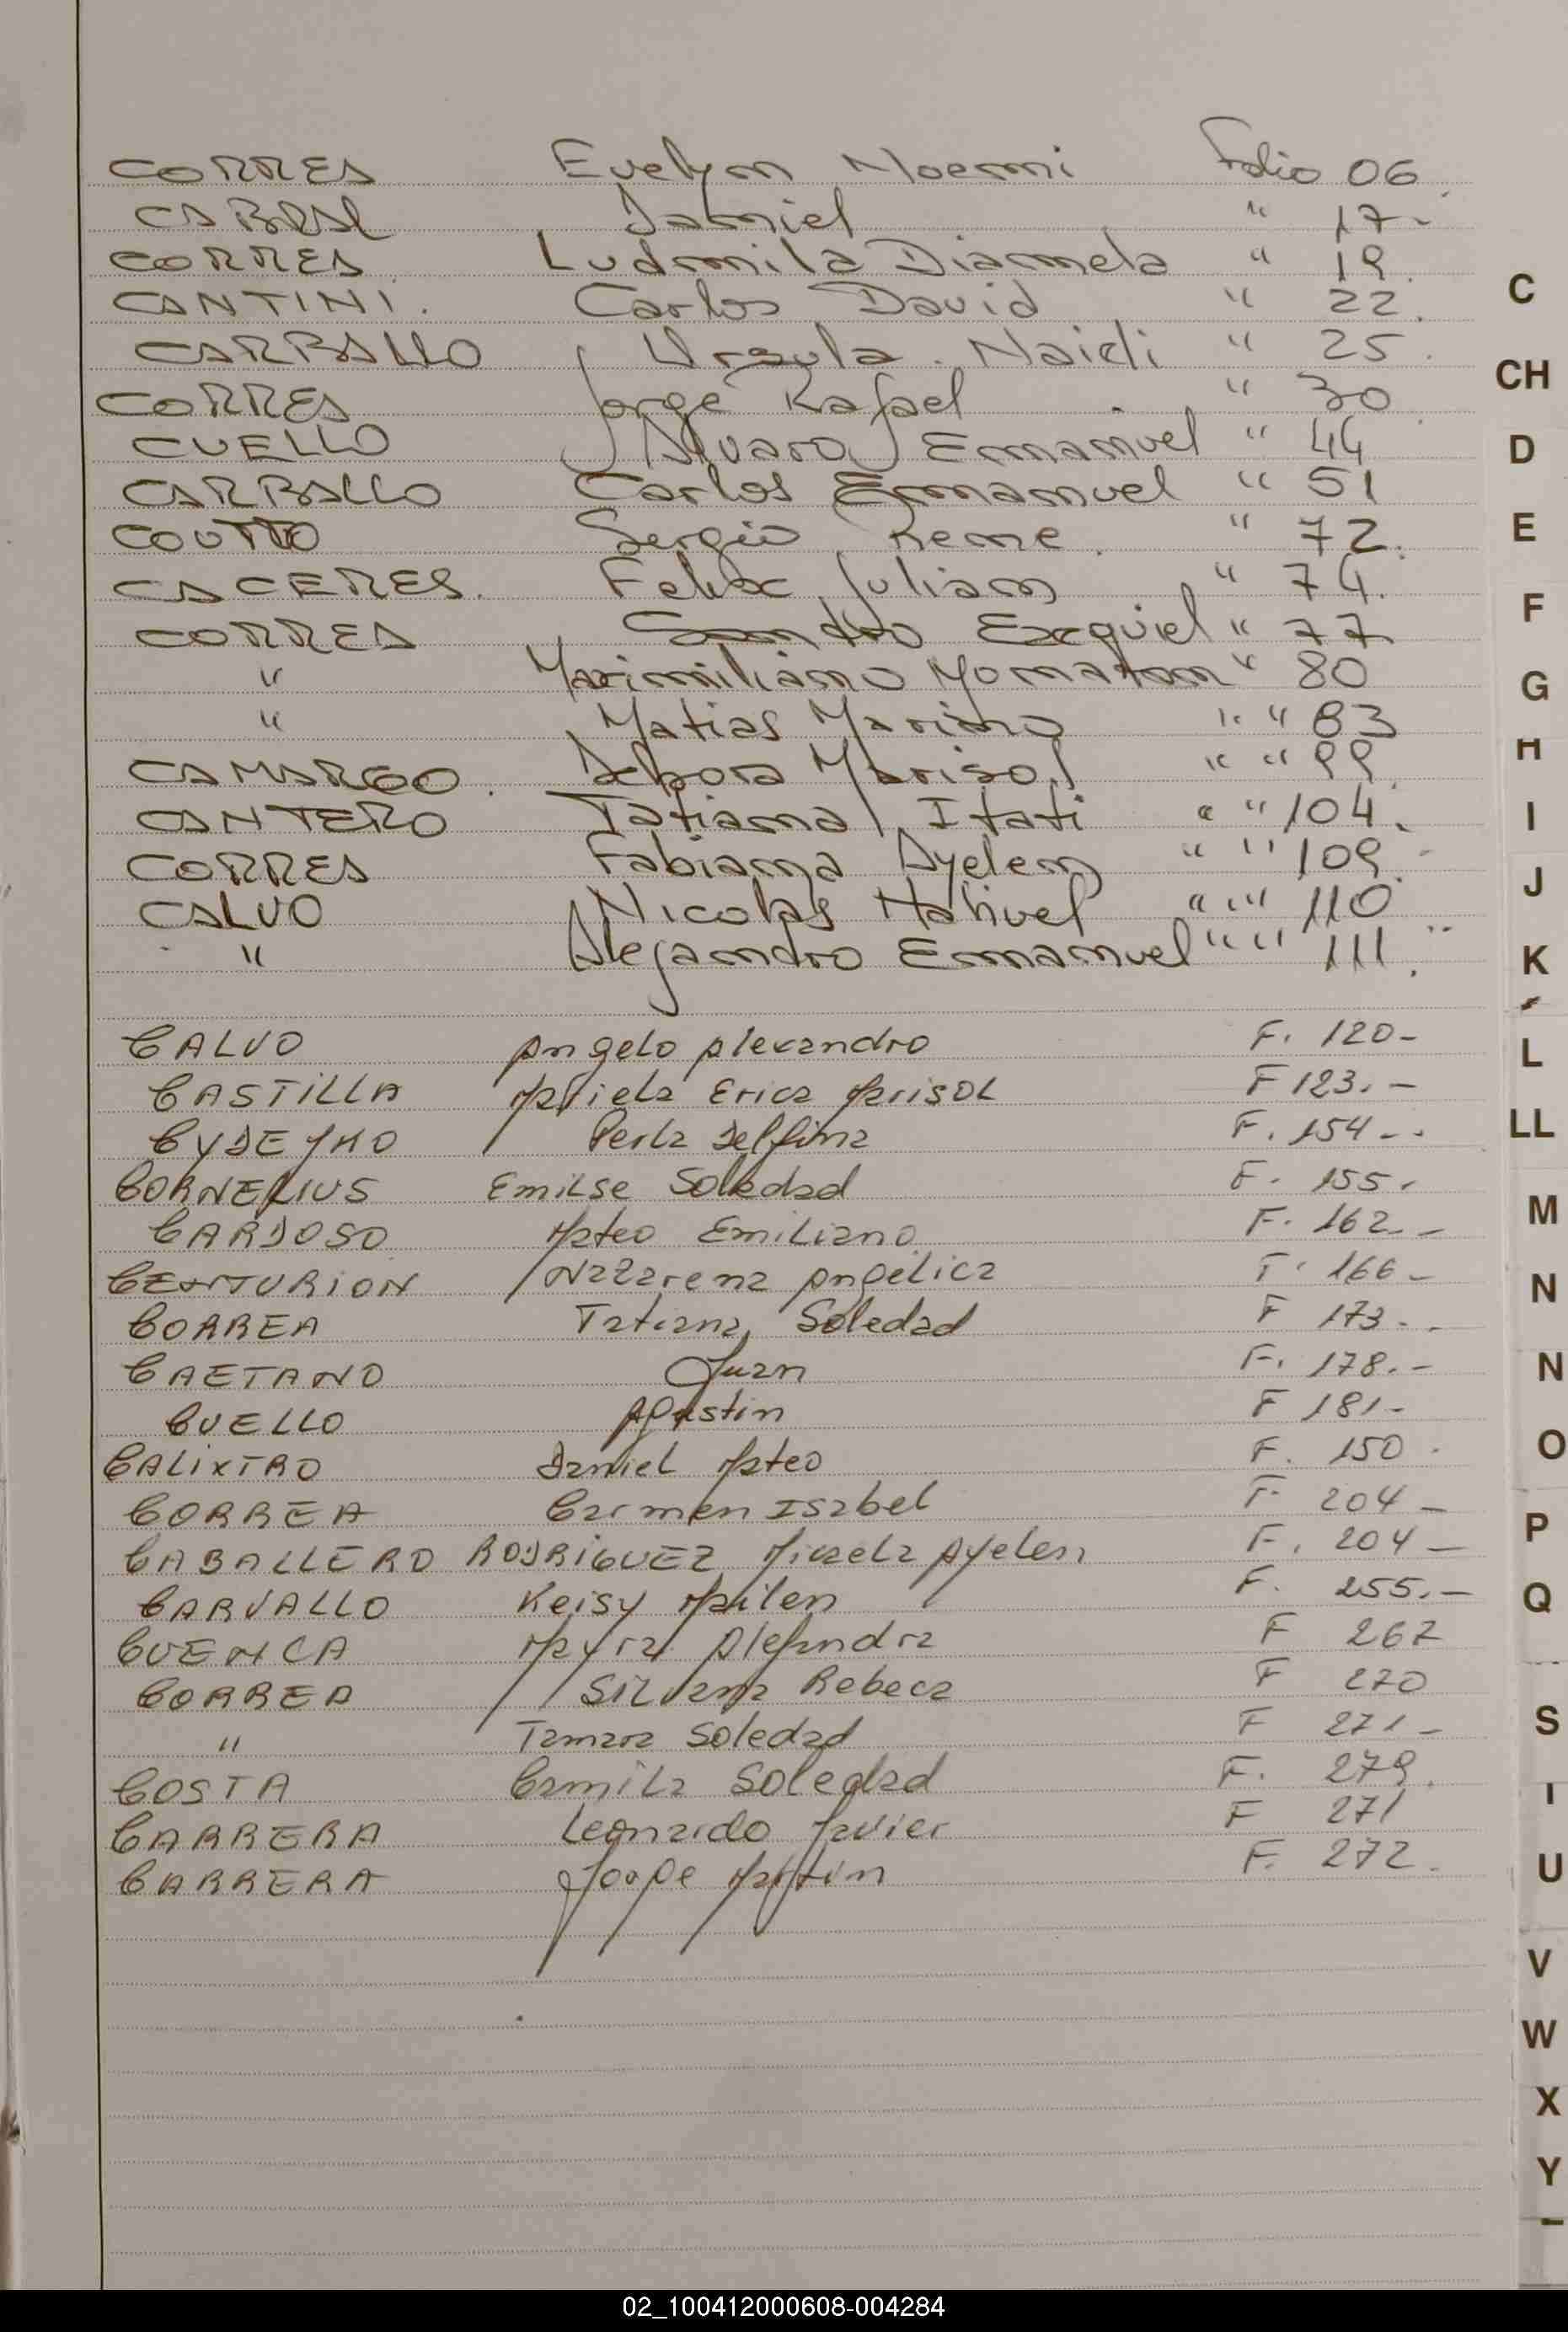 CORREA Evelyn Noemi Folio 06.
CABRAL Daniel " 17-
CORREA Ludmila Diamela " 19.
CANTINI. Carlos David " 22.
CARBALLO Ursula Naidi " 25.
CORREA Jorge Rafael " 30
CUELLO Alvaro Emmanuel " 44
CARBALLO Carlos Emmanuel " 51
COUTTO Sergio Rene. " 72.
CACERES. Felix Julian " 74.
CORREA Sandro Exequiel " 77
" Maximiliano Yonatan " 80
" Matias Marino " " 83
CAMARGO. Debora Marisol " " 99.
CANTERO Tatiana Itati " " 104.
CORREA Fabiana Ayelen " " 109.
CALVO Nicolas Nahuel " " 110
" Alejandro Emmanuel " " 111.
CALVO Angelo Alexandro F. 120-
CASTILLA Mariela Erica Marisol F 123.-
Perla Delfina F. 154-.
CORNELIUS Emilse Soledad F. 155.
CARDOSO Mateo Emiliano F. 162.-
CENTURION Nazarena Angelica F. 166-
CORREA Tatiana Soledad F 173-.
CAETANO Juan F. 178.-
CUELLO Agustin F 181-
CALIXTRO Daniel Mateo F. 150.
CORREA Carmen Isabel F. 204-
CABALLERO RODRIGUEZ Micaela Ayelen F. 204-
CARVALLO Keisy Mailen F. 255.-
CUENCA Mayra Alejandra F 267
CORREA Silvana Rebeca F 270
" Tamara Soledad F 271-
COSTA Camila Soledad F. 279.
CARRERA Leonardo Javier F 271
CARRERA Jorge Martin F. 272.
C
CH
D
E
F
G
H
I
J
K
L
LL
M
N
N
O
P
Q
S
U
V
W
X
Y
02_100412000608-004284